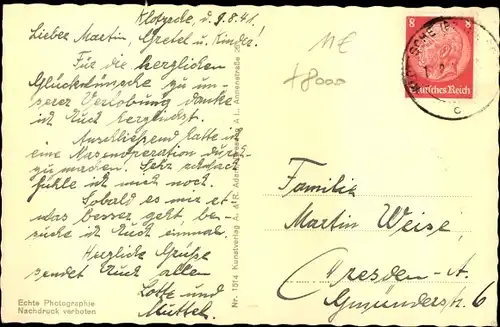 Klotzsche, d. 9.8.41.
Lieber Martin, Gretel u. Kinder!
Für die herzlichen
Glückwünsche zu un-
serer Verlobung danke
ich Euch herzlichst.
Anschließend hatte ich
eine Nasenoperation durch-
zumachen. Sehr schwach
fühle ich mich noch.
Sobald es mir et-
was besser geht, be-
suche ich Euch einmal.
Herzliche Grüße
sendet Euch allen
Lotte und
Mutter.
Echte Photographie
Nachdruck verboten
Nr. 1514 Kunstverlag A. &R. Adam, Dresden A.1, Annenstraße
8 8
Deutsches Reich
8000
Familie
Martin Weise,
Dresden-A.
Gmünderstr. 6